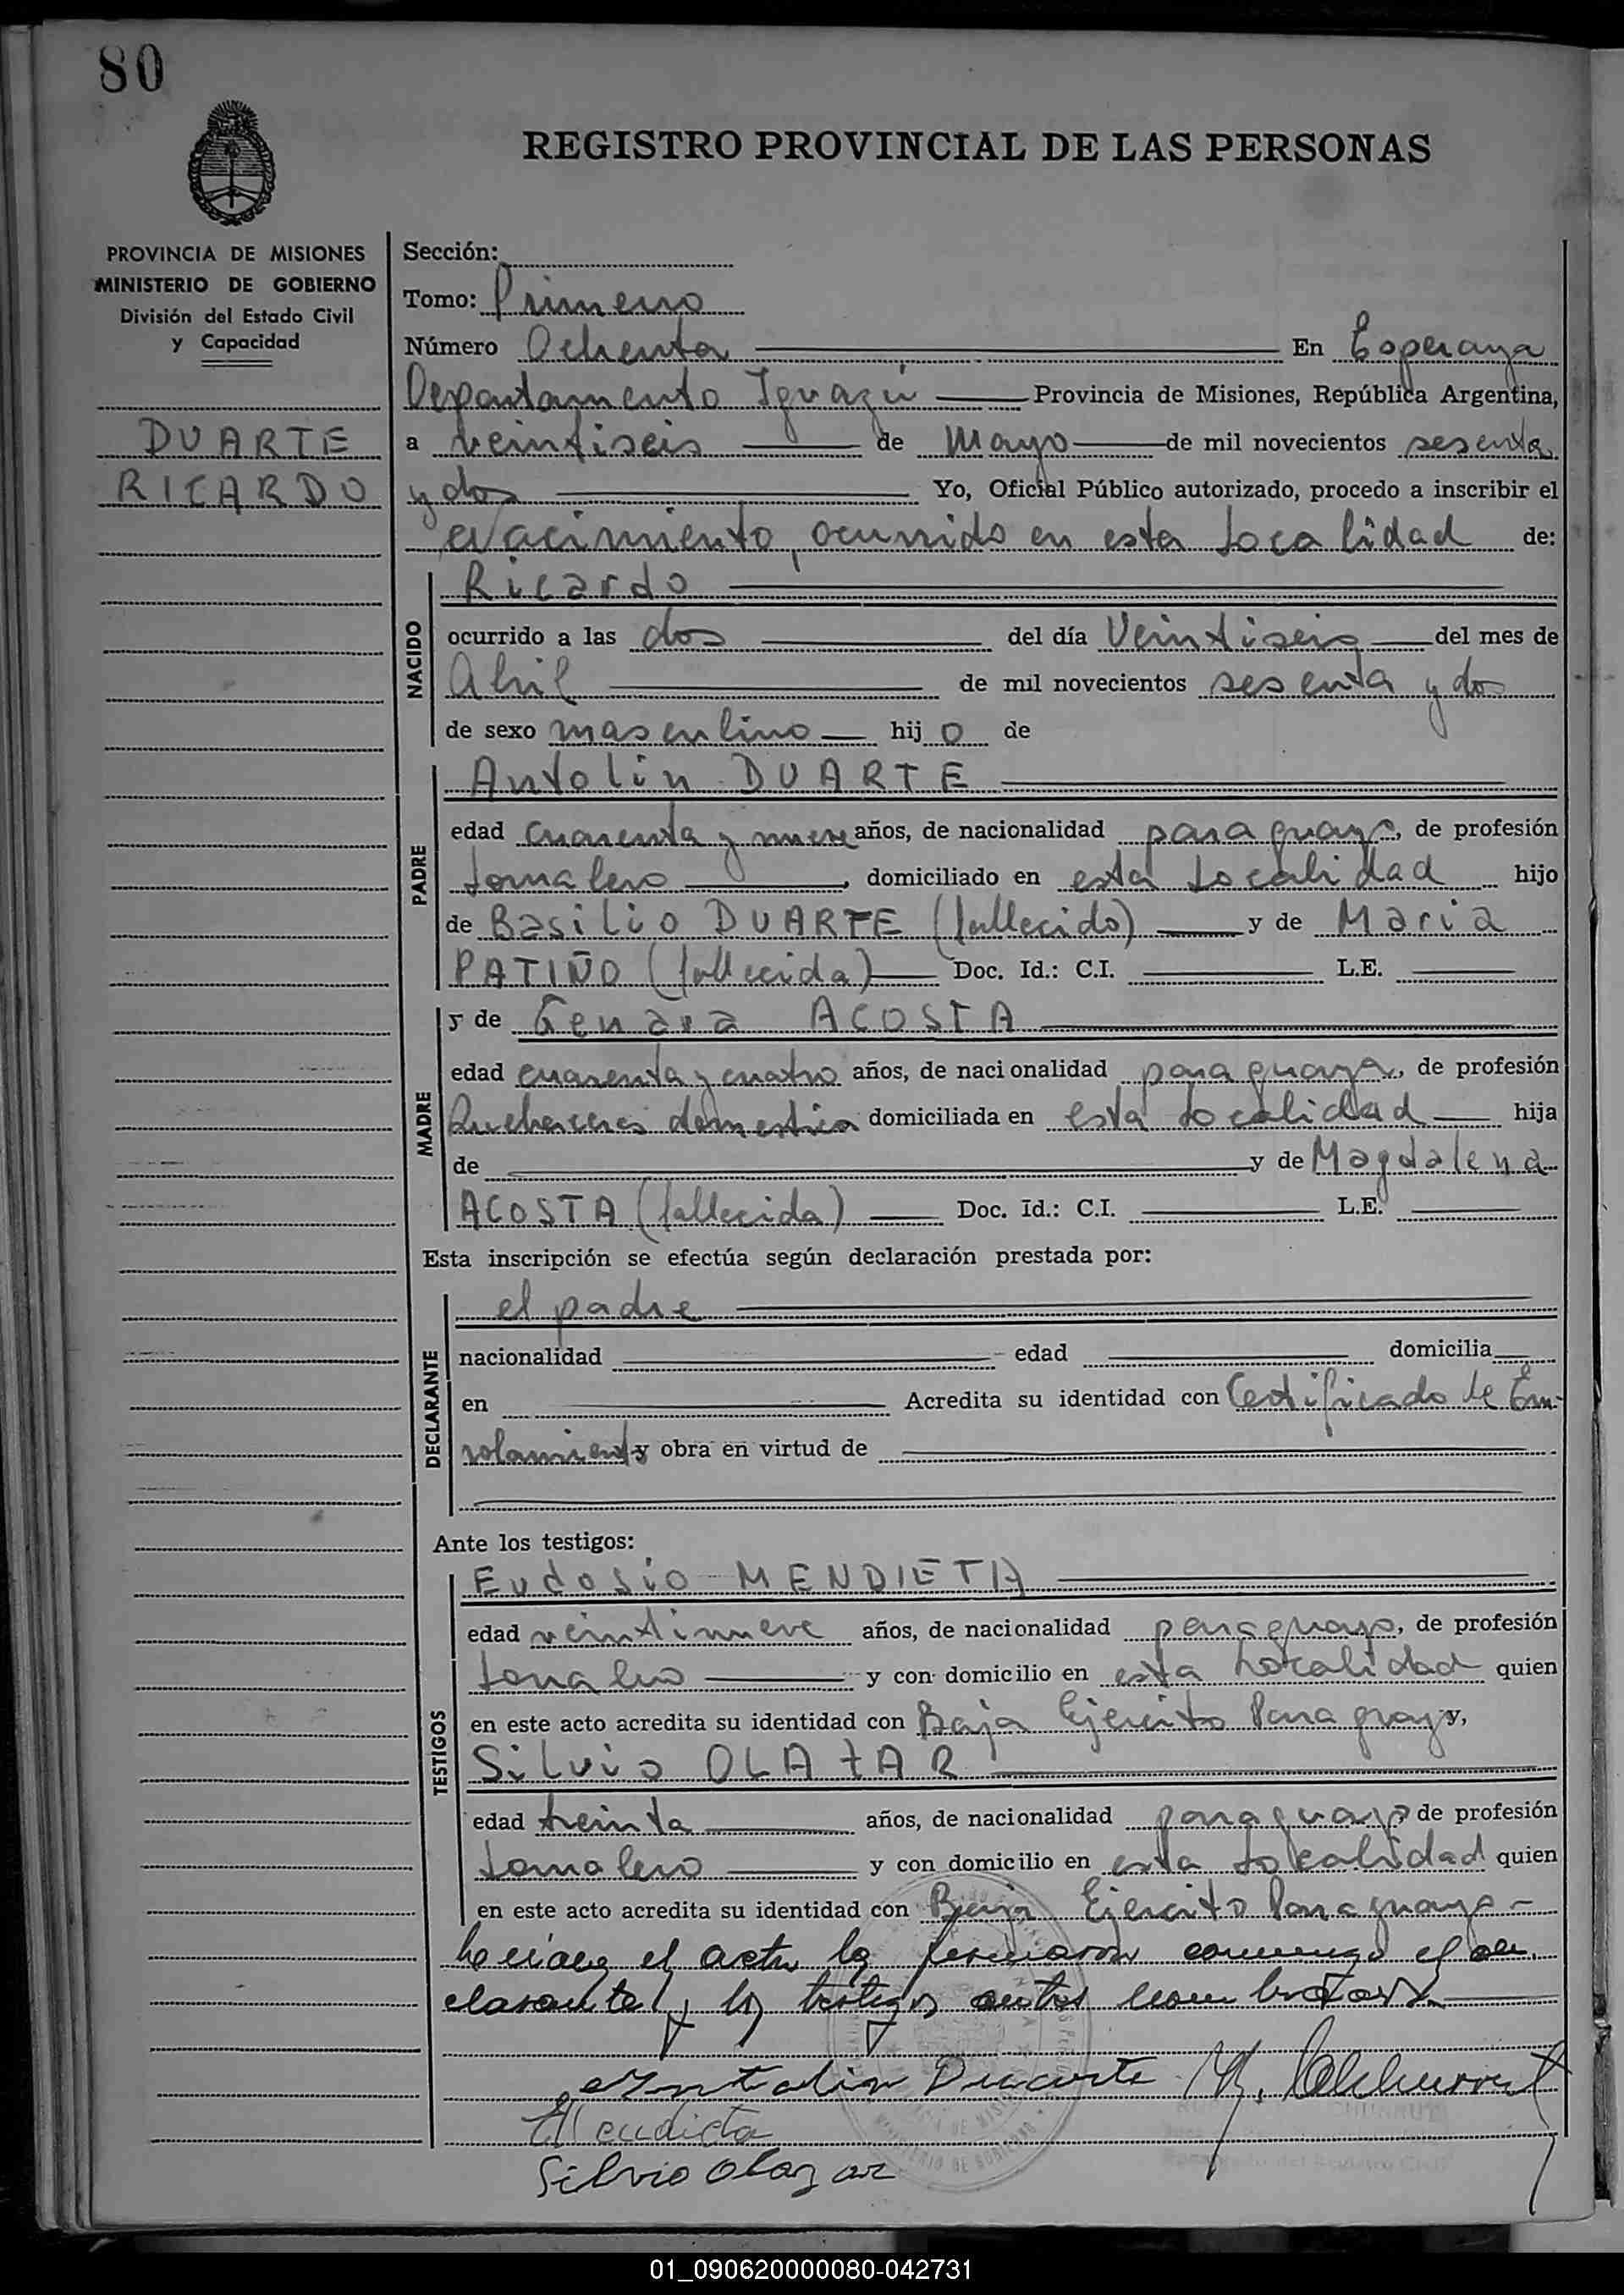 80
REGISTRO PROVINCIAL DE LAS PERSONAS
PROVINCIA DE MISIONES
MINISTERIO DE GOBIERNO
División del Estado Civil
y Capacidad
DUARTE
RICARDO
Sección:
Tomo: Primero
Número Ochenta En Esperanza
Departamento Iguazú Provincia de Misiones, República Argentina,
a veintiseis de Mayo de mil novecientos sesenta
y dos Yo, Oficial Público autorizado, procedo a inscribir el
Nacimiento, ocurrido en esta Localidad de:
NACIDO
Ricardo
ocurrido a las dos del día Veintiseis del mes de
Abril de mil novecientos sesenta y dos
de sexo masculino hijo de
PADRE
Antolin DUARTE
edad cuarenta y nueve años, de nacionalidad paraguayo, de profesión
Jornalero, domiciliado en esta Localidad hijo
de Basilio DUARTE (fallecido) y de Maria
PATIÑO (fallecida) Doc. Id.: C.I. L.E.
MADRE
y de Genara ACOSTA
edad cuarenta y cuatro años, de nacionalidad paraguaya, de profesión
Quehaceres domestica domiciliada en esta Localidad hija
de y de Magdalena
ACOSTA (fallecida) Doc. Id.: C.I. L.E.
Esta inscripción se efectúa según declaración prestada por:
DECLARANTE
el padre
nacionalidad edad domicilia
en Acredita su identidad con Certificado de En-
rolamiento y obra en virtud de
Ante los testigos:
TESTIGOS
Eudosio MENDIETA
edad veintinueve años, de nacionalidad paraguayo, de profesión
Jornalero y con domicilio en esta Localidad quien
en este acto acredita su identidad con Baja Ejercito Paraguayo y,
Silvio OLAZAR
edad treinta años, de nacionalidad paraguayo de profesión
Jornalero y con domicilio en esta Localidad quien
en este acto acredita su identidad con Baja Ejercito Paraguayo-
el acta la firmaron conmigo el de-
clarante y los testigos antes nombrados
Antolin Duarte
Mendieta
Silvio Olazar
01_090620000080-042731